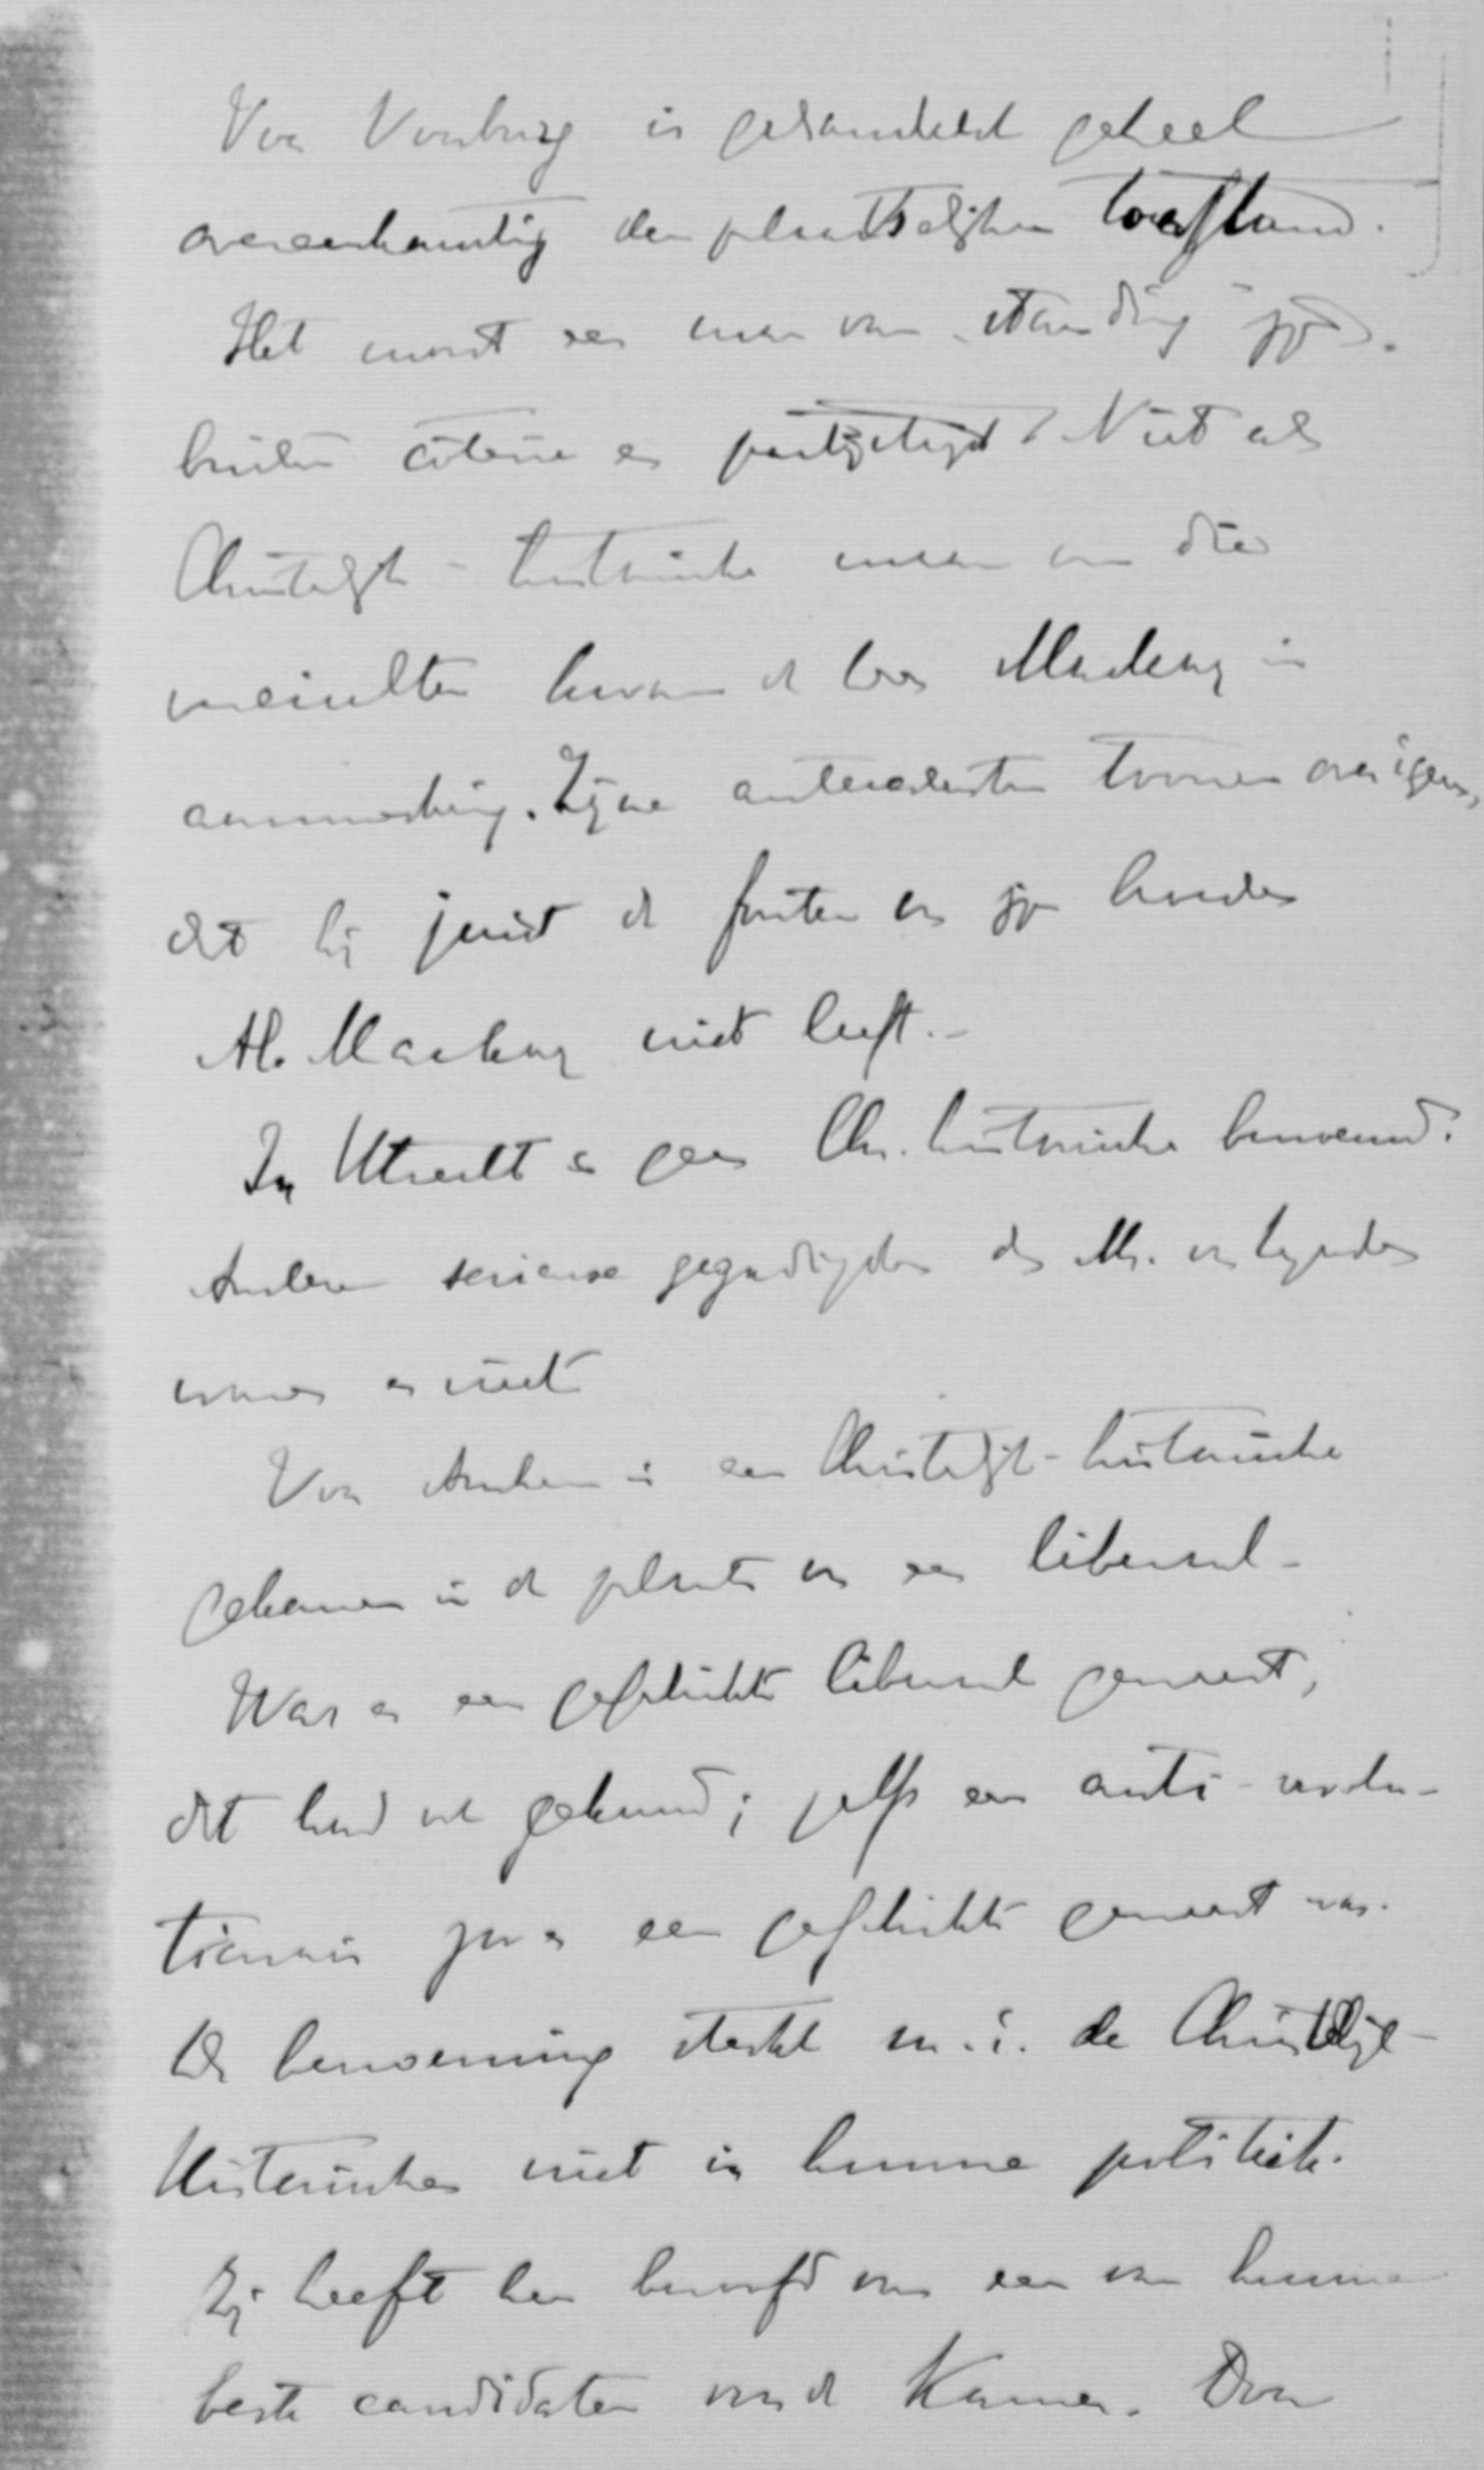 Voor Voorburg is gehandeld geheel
overeenkomstig den plaatselijken toestand.
Het moest een man van standing zijn.
buiten coterie en partijstrijd. Niet als
Christelijk-historische maar om die
kwam de heer Mackay in
aanmerking. Zijne antecedenten toonen overigens,
dat hij juist de fouten van zijn broeder
Al. Mackay niet heeft.-
In Utrecht is geen Chr. historische benoemd.
Andere serieuse gegadigden dan Mr. v.
waren er niet
Voor Arnhem is een Christelijk-historische
gekomen in de plaats van een liberaal-
Was er een geschikte liberaal geweest,
dat had ook gekund; zelfs een anti-revolu-
tionair zoo er een geschikte geweest was.
De benoeming sterkt m.i. de Christelijk-
Historischen niet in hunne politiek.
Zij heeft hen beroofd van een van hunne
beste candidaten voor de Kamer. Door